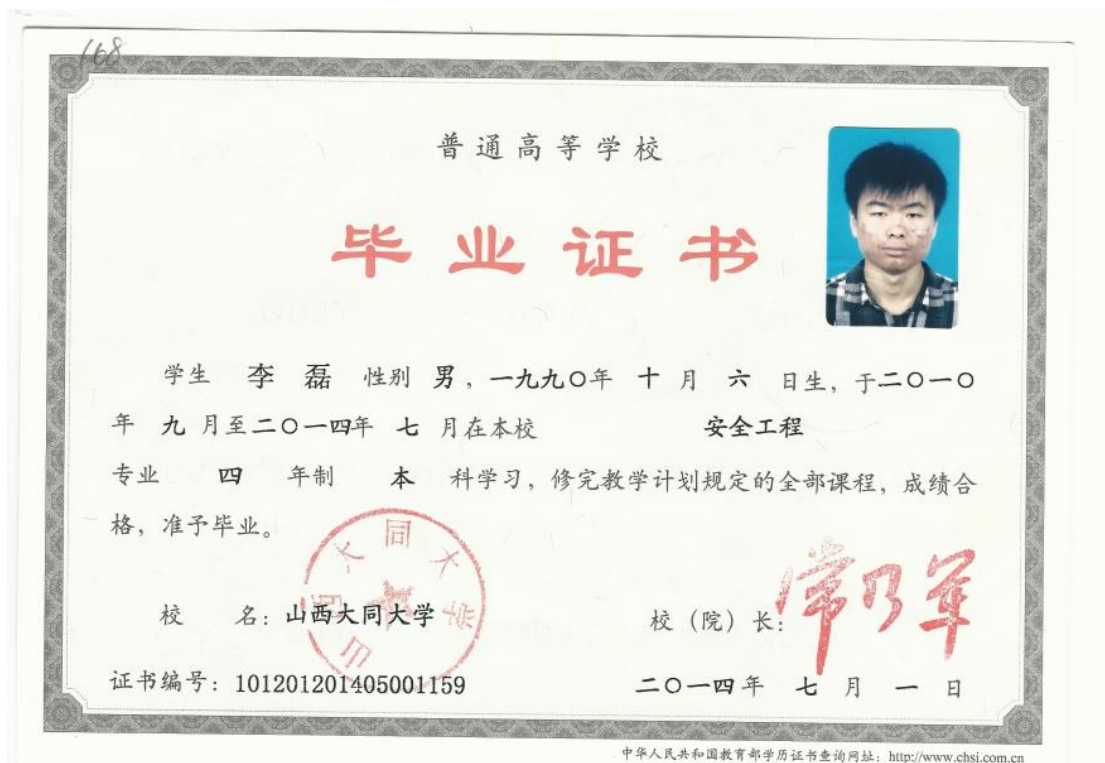 168
普通高等学校
毕业证书
学生 李磊 性别 男，一九九〇年 十 月 六 日生，于二〇一〇
年 九 月至二〇一四年 七 月在本校 安全工程
专业 四 年制 本 科学习，修完教学计划规定的全部课程，成绩合
格，准予毕业。
山西大同大学
校 名：山西大同大学 校（院）长：常乃军
证书编号：101201201405001159 二〇一四年 七 月 一 日
中华人民共和国教育部学历证书查询网址：http://www.chsi.com.cn